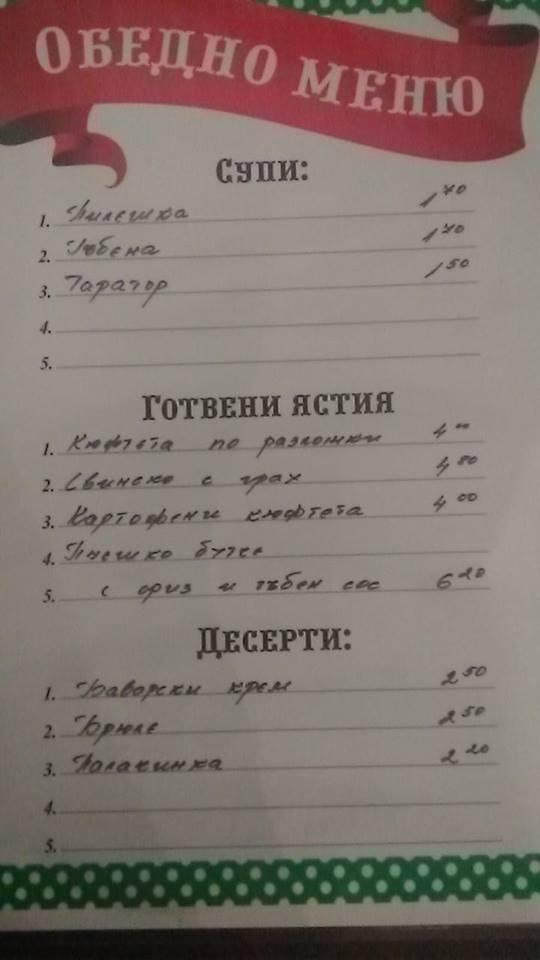 ОБЕДНО МЕНЮ
СУПИ:
1. Пилешка 1 70
2. Гъбена 1 70
3. Таратор 1 50
4.
5.
ГОТВЕНИ ЯСТИЯ
1. Кюфтета по разложки 4 00
2. Свинско с грах 4 80
3. Картофени кюфтета 4 00
4. Пилешко бутче
5. с ориз и гъбен сос 6 20
ДЕСЕРТИ:
1. Баварски крем 2 50
2. Брюле 2 50
3. Палачинка 2 20
4.
5.